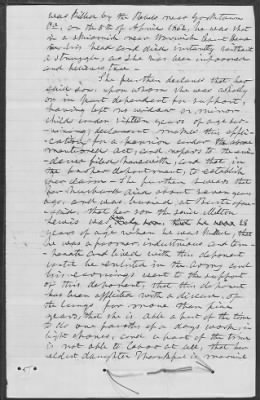 was killed by the Rebels near Yorktown
Va., on the 5th of April 1862, he was shot
in a skirmish near Warwick
his head and died instantly without
a struggle, as she has been informed
and believes true.
She further declares that her
said son, upon whom she was wholly
or in part dependent for support,
having left no widow or minor
child under sixteen years of age
declarant makes this appli-
cation for a pension under the above
mentioned Act, and refers to the evi-
dence filed herewith, and that in
the proper department, to establish
her claim. She further swears that
her husband died about seven years
ago, and was buried at
that her son the said
Lewis was that he was 18
years of age when he was killed, that
he was a sober, industrious and tem-
perate and lived with this deponent
until he enlisted in the Army and
his earnings went to the support
of this deponent, that this deponent
has been afflicted with a disease of
the lungs for more than five
years, that she is able a part of the time
to do one fourth of a days work, in
light chores, and a part of the time
is not able to labor at all, that her
eldest daughter is married